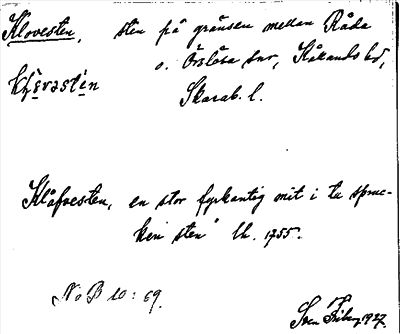 Klovesten, sten på gränsen mellan Råda
o. Örslösa snr, Kållands hd,
Skarab. l.
Klåfvesten, en stor fyrkantig mit i tu spruc-
ken sten" Lh. 1755.
NoB 10:69.
Sven Friberg 1927.